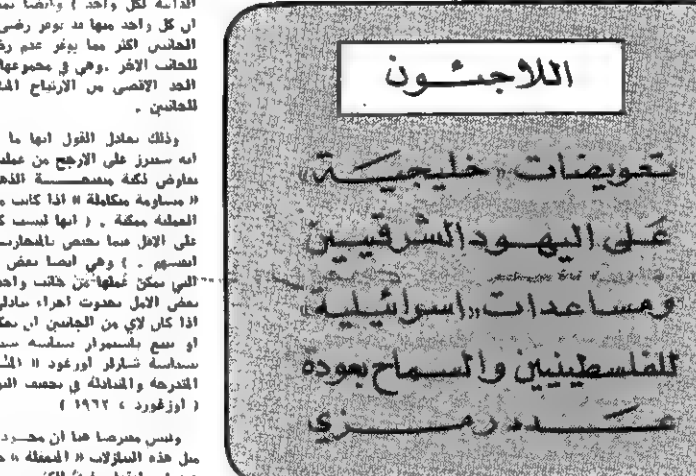 اللاجئون
تعويضات «خليجية»
على اليهود الشرقيين
ومساعدات «اسرائيلية»
للفلسطينيين والسماح بعودة
عدد رمزي
لكل واحد ) وايضا
ان كل واحد منها قد توفر رضى
الجانبين اكثر مما يوفر عدم
للجانب الاخر . وهي في مجموعها
الحد الاقصى من الارتياح
للجانبين .
وذلك يعادل القول انها ما
انه سيبرز على الارجح من
تفاوض
« مساومة متكاملة » اذا كانت
العملية ممكنة . ( انها ليست
على الاقل فيما يختص
انفسهم . ) وهي ايضا بعض
التي يمكن عملها من جانب واحد
بعض الامل بحدوث اجراء
اذا كان لاي من الجانبين ان
او يتبع باستمرار سياسة
بسياسة شارلز اوزغود «
المتدرجة والمتبادلة في تخفيف
( اوزغورد ، ١٩٦٢ )
وليس هنا ان
مثل هذه التنازلات «